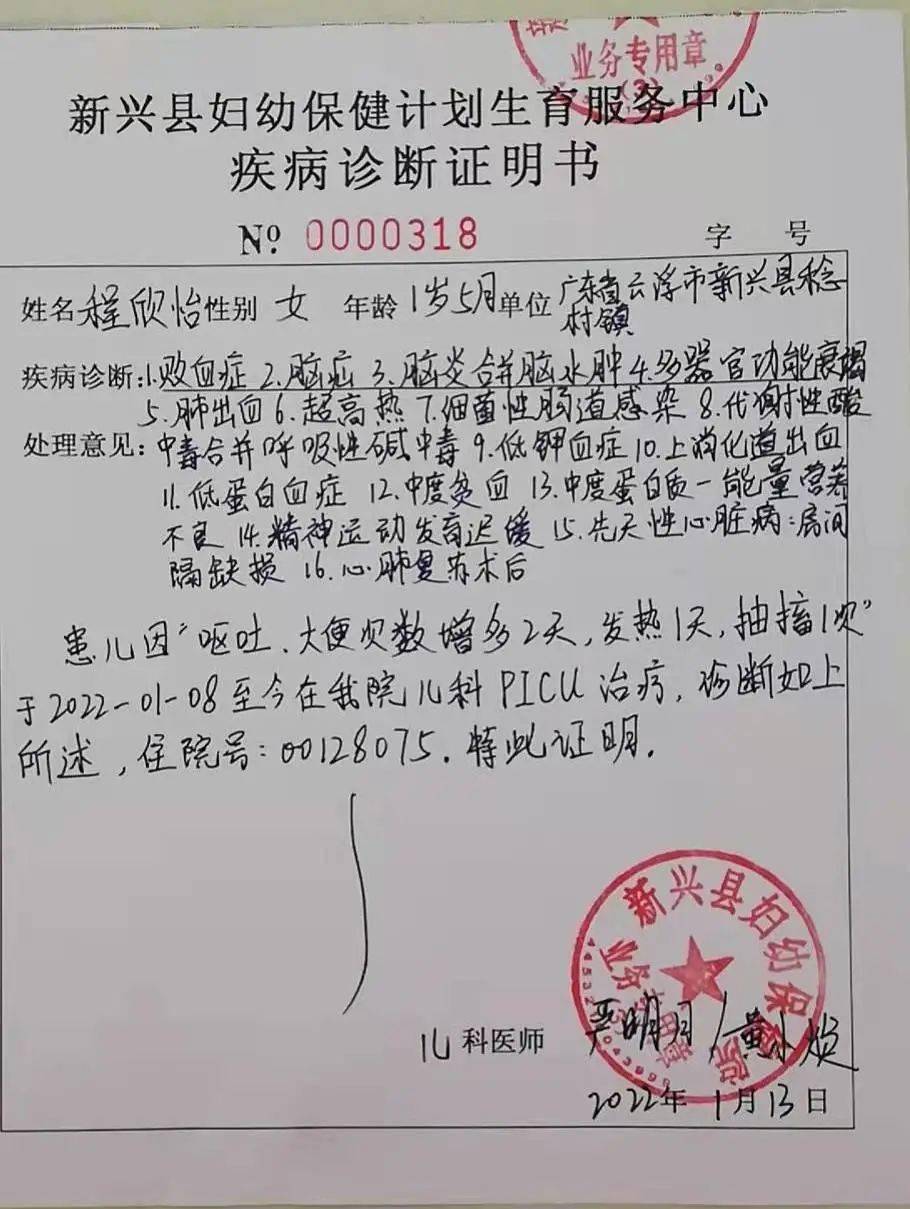 业务专用章
(3)
新兴县妇幼保健计划生育服务中心
疾病诊断证明书
№ 0000318 字 号
姓名 程欣怡 性别 女 年龄 1岁5月 单位 广东省云浮市新兴县稔
村镇
疾病诊断:1.败血症 2.脑疝 3.脑炎合并脑水肿 4.多器官功能衰竭
5.肺出血 6.超高热 7.细菌性肠道感染 8.代谢性酸
处理意见: 中毒合并呼吸性碱中毒 9.低钾血症 10.上消化道出血
11.低蛋白血症 12.中度贫血 13.中度蛋白质-能量营养
不良 14.精神运动发育迟缓 15.先天性心脏病:房间
隔缺损 16.心肺复苏术后
患儿因“呕吐、大便次数增多2天,发热1天,抽搐1次”
于2022-01-08至今在我院儿科PICU治疗,诊断如上
所述,住院号:00128075.特此证明.
新兴县妇幼保健院
业务专用章
儿科医师 严明月/黄小
2022年1月13日